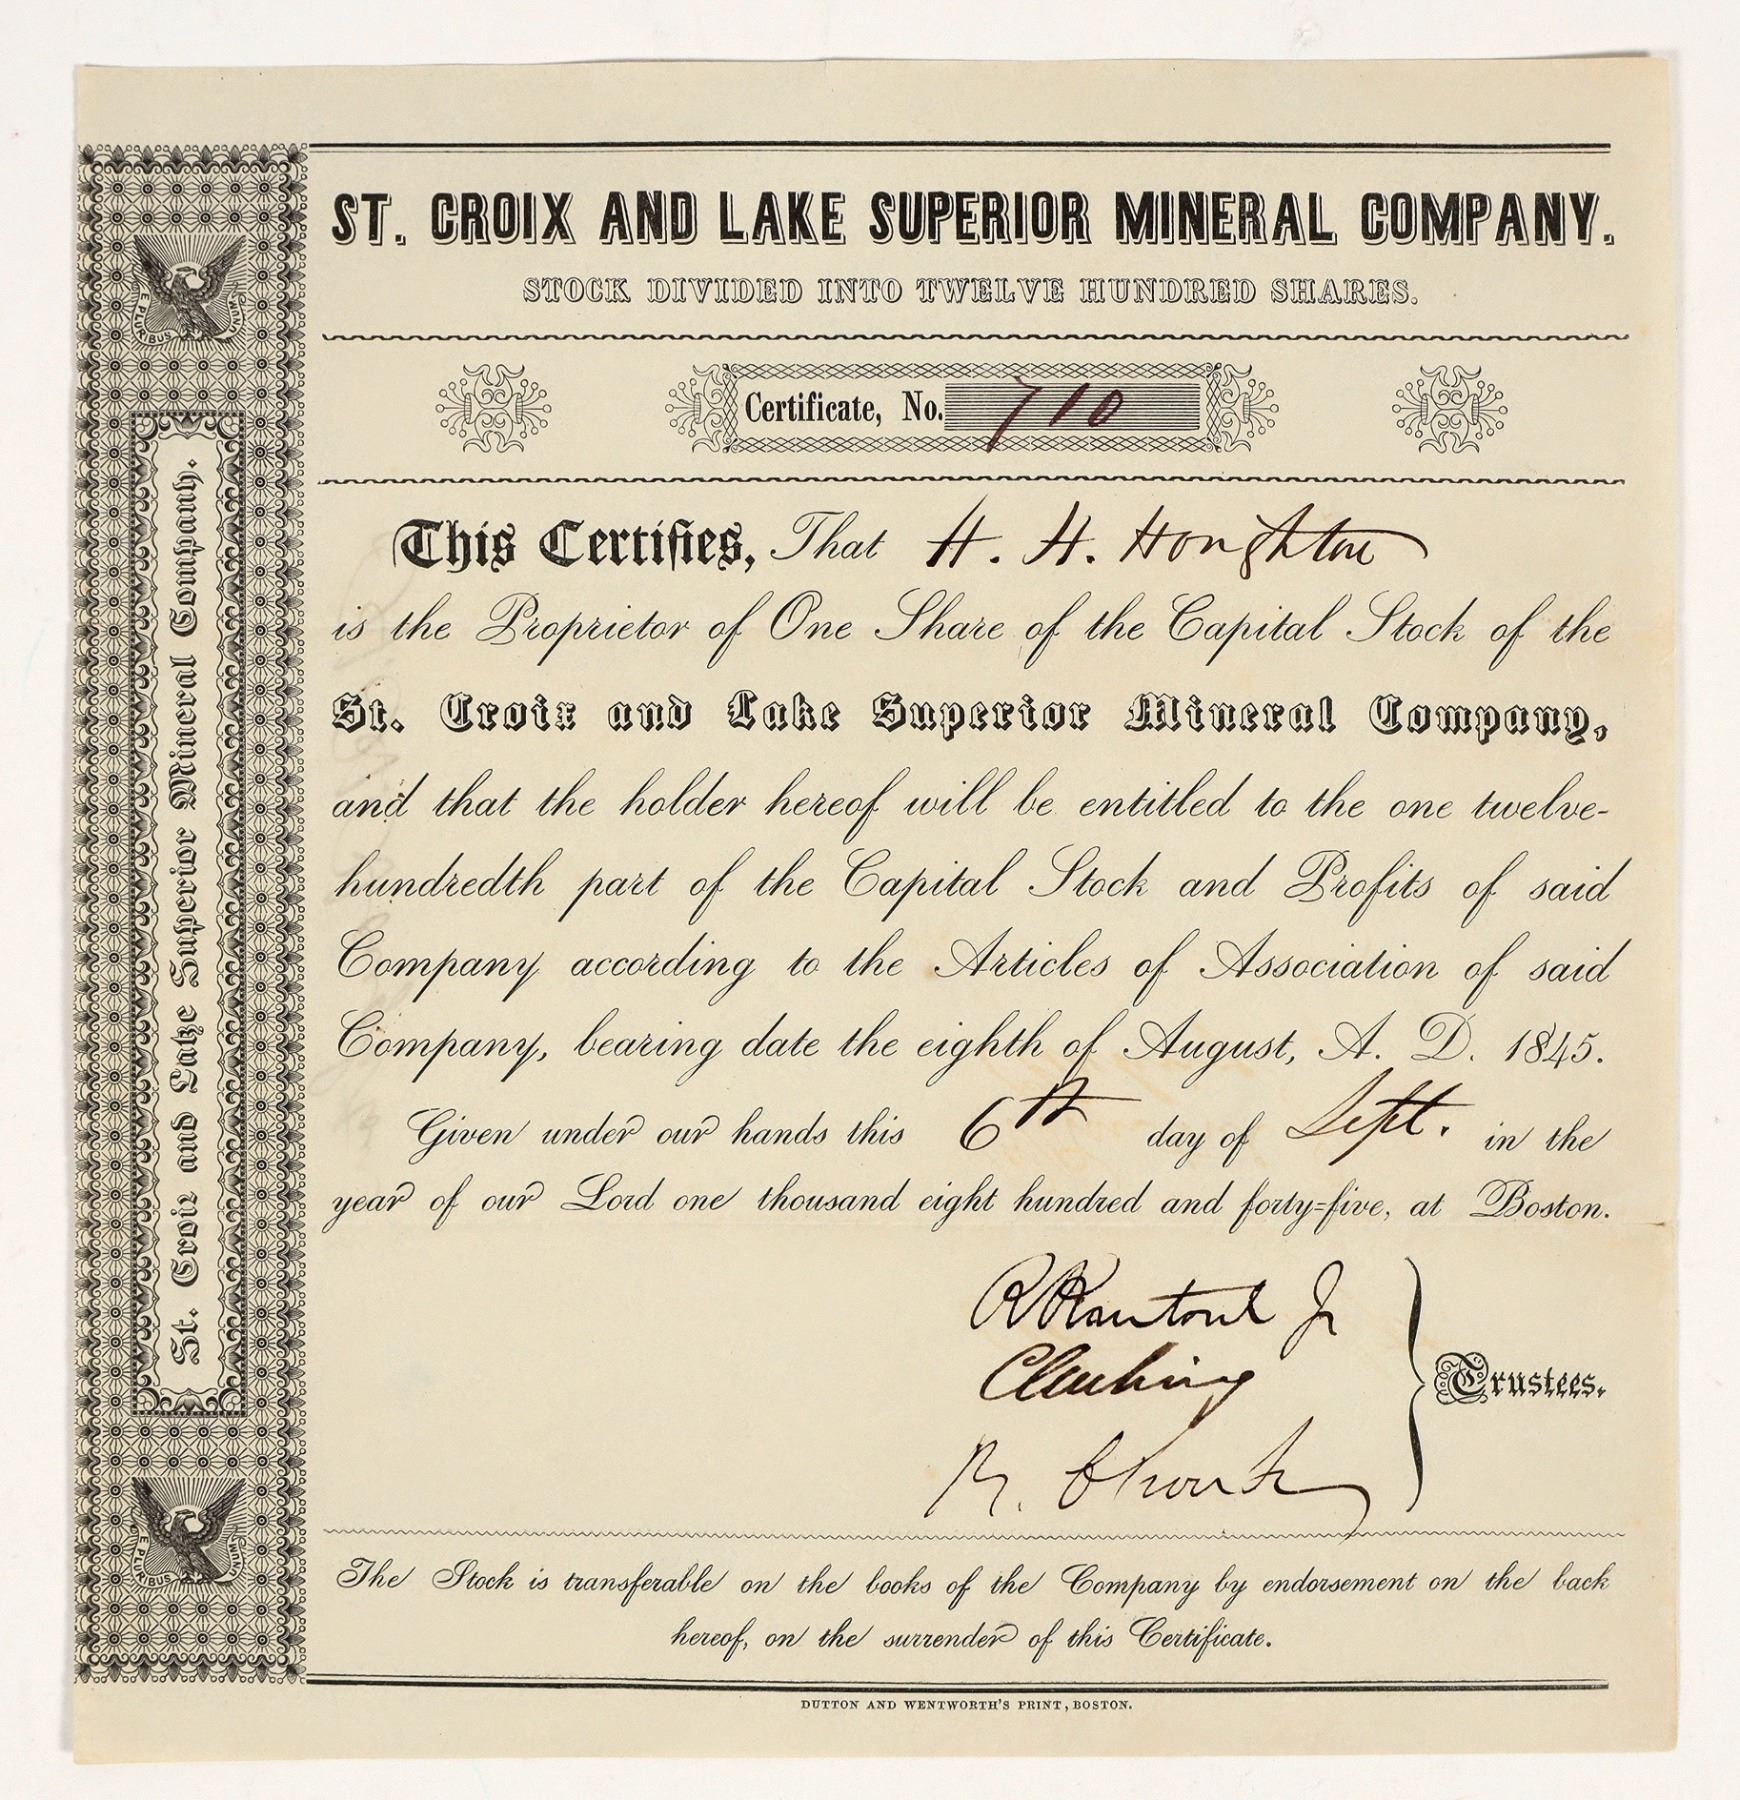 ST. CROIX AND LAKE SUPERIOR MINERAL COMPANY.
STOCK DIVIDED INTO TWELVE HUNDRED SHARES.
Certificate, No. 710
This Certifies, That H. H. Houghton
is the Proprietor of One Share of the Capital Stock of the
St. Croix and Lake Superior Mineral Company,
and that the holder hereof will be entitled to the one twelve-
hundredth part of the Capital Stock and Profits of said
Company according to the Articles of Association of said
Company, bearing date the eighth of August, A. D. 1845.
Given under our hands this 6th day of Sept. in the
year of our Lord one thousand eight hundred and forty=five, at Boston.
R Rantoul Jr
C Cushing
Trustees.
The Stock is transferable on the books of the Company by endorsement on the back
hereof, on the surrender of this Certificate.
DUTTON AND WENTWORTH'S PRINT, BOSTON.
St. Croix and Lake Superior Mineral Company.
E PLURIBUS UNUM
E PLURIBUS UNUM